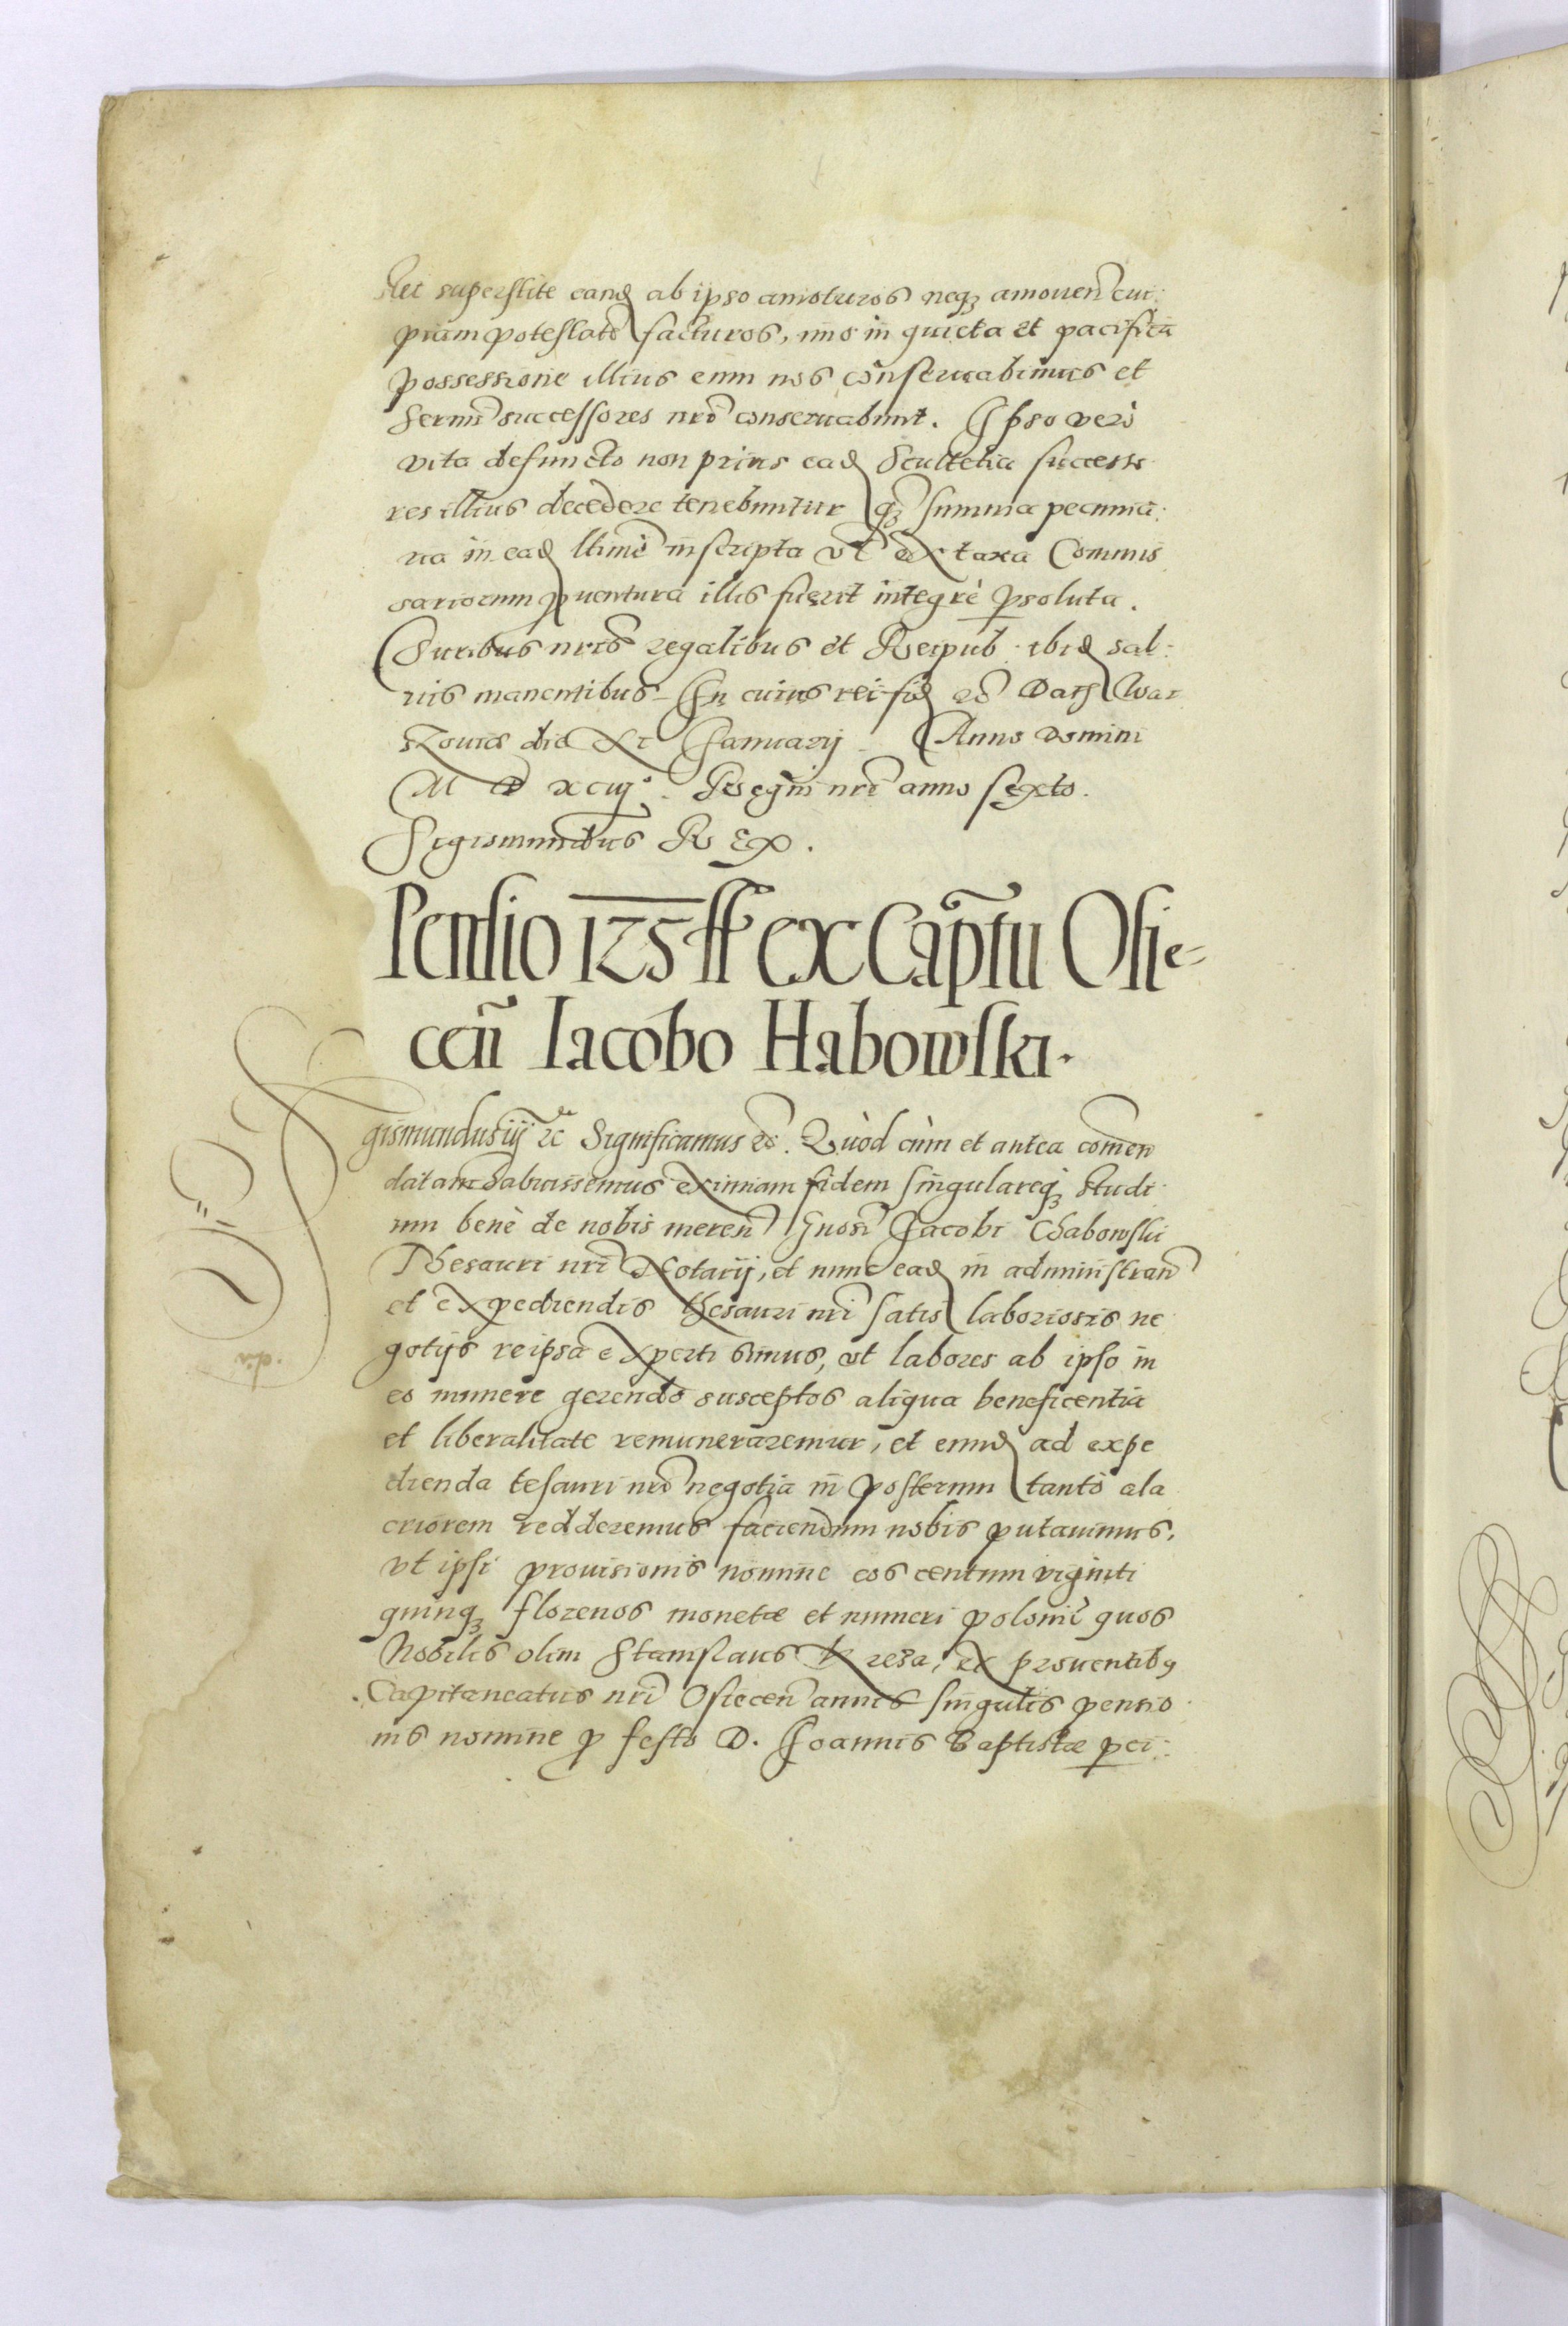 superstite eand ab ipso amoturos neqꝫ amouen̄ cui:
piam potestatē facturos, imo in quieta et pacifica
possessione illius eum nos conseruabimus et
Sermī successores nrī conseruabunt. Ipso verò
vita defuncto non prius ead Scultetia successo
res illius decedere tenebuntur qꝫ summa pecunia:
ria in ead ltimè inscripta vl ex taxa Commis
sariorum ꝓuentura illis fuerit integrè ꝑsoluta.
Iuribus nrīs regalibus et Reipub. ibid sal:
uis manentibus. In cuius rei fid &c Dat War
szouiæ die XI Januarij. Anno Domini
M D XCIIJ°. Regni nrī anno sexto.
Sigismundus Rex.
Pensio 125 ff ex Cap̄tu Osie-
cen̄ Iacobo Habowski.
Sigismundus iij &c Significamus &c. Quòd cùm et antea com̄en
datam habuissemus eximiam fidem singulareqꝫ studi
um benè de nobis meren̄ Gnosi Jacobi Chabowski
Thesauri nrī Notarij, et nunc ead in administran̄
et expediendis thesauri nrī satis laboriosis ne
gotijs reipsa experti simus, vt labores ab ipso in
eo munere gerendo susceptos aliqua beneficentia
et liberalitate remuneraremur, et eund ad expe
dienda tesauri nrī negotia in posterum tantò ala
criorem redderemus faciendum nobis putauimus,
vt ipsi prouisionis nomine eos centum viginti
quinqꝫ florenos monetæ et numeri polonīc quos
Nobilis olim Stanislaus ex prouentibꝰ
Capitaneatus nrī Osiecen̄ annis singulis pensio
nis nomine ꝓ festo D. Joannis Baptistæ ꝑci: